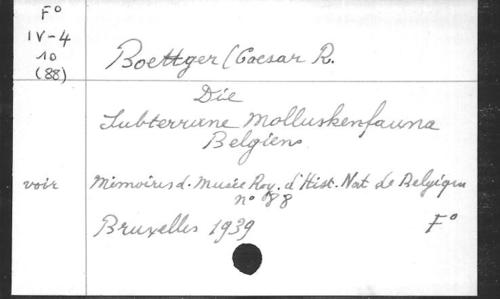 F°
IV-4
10
(88)
Boettger (Caesar R.
Die
Subterrane Molluskenfauna
Belgiens
voir Mémoires d. Musée Roy. d'Hist. Nat de Belgique
n° 88
Bruxelles 1939 F°